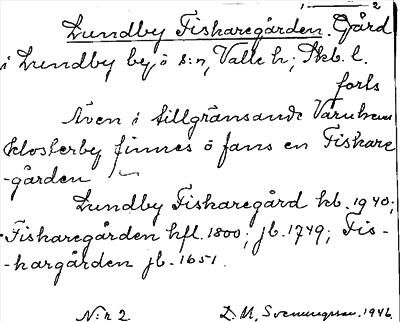 Lundby Fiskaregården. Gård
i Lundby by o s:n, Valle h; Skb. l.
forts
Även i tillgränsande Varnhems
Klosterby finnes o fans en Fiskare
-gården
Lundby Fiskaregård kb. 1940;
Fiskaregården hfl. 1800; jb. 1749; Fis-
-kargården jb. 1651.
N:r 2 D. M. Svenungsson. 1946